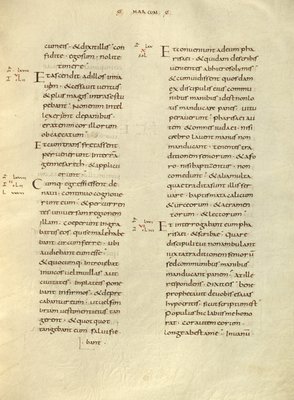 MARCUM
cum eis & dixit illis con
fidite ego sum nolite
timere
Et ascendit ad illos in na
uem & cessauit uentus
& plus magis intra se stu
pebant Non enim intel
lexerunt de panibus
erat enim cor illorum
obcaecatum
Et cum transfretassent
peruenerunt in terra
genesareth & applicue
runt
Cumq egressi essent de
naui continuo cognoue
runt eum & percurren
tes uniuersam regionem
illam coeperunt in gra
battis eos qui se male habe
bant circumferre ubi
audiebant eum esse
& quocumq introibat
in uicos uel in uillas aut
ciuitates in plateis pone
bant infirmos & depre
cabantur eum ut uel fim
briam uestimenti eius tan
gerent & quotquot
tangebant eum salui fie
bant
Et conueniunt ad eum pha
risaei & quidam de scribis
uenientes ab hierosolymis
& cum uidissent quosdam
ex discipulis eius commu
nibus manibus id est non lo
tis manducare panes uitu
perauerunt pharisaei au
tem & omnes iudaei nisi
crebro lauent manus non
manducant tenentes tra
ditionem seniorum & a fo
ro nisi baptizentur non
comedunt & alia multa
quae tradita sunt illis ser
uare baptismata calicum
& urceorum & aeramen
torum & lectorum
Et interrogabant eum pha
risaei & scribae quare
discipuli tui non ambulant
iuxta traditionem senioru
sed communibus manibus
manducant panem At ille
respondens dixit eis bene
prophetauit de uobis esaias
hypocritis sicut scriptum est
Populus hic labiis me hono
rat cor autem eorum
longe abest a me In uanu